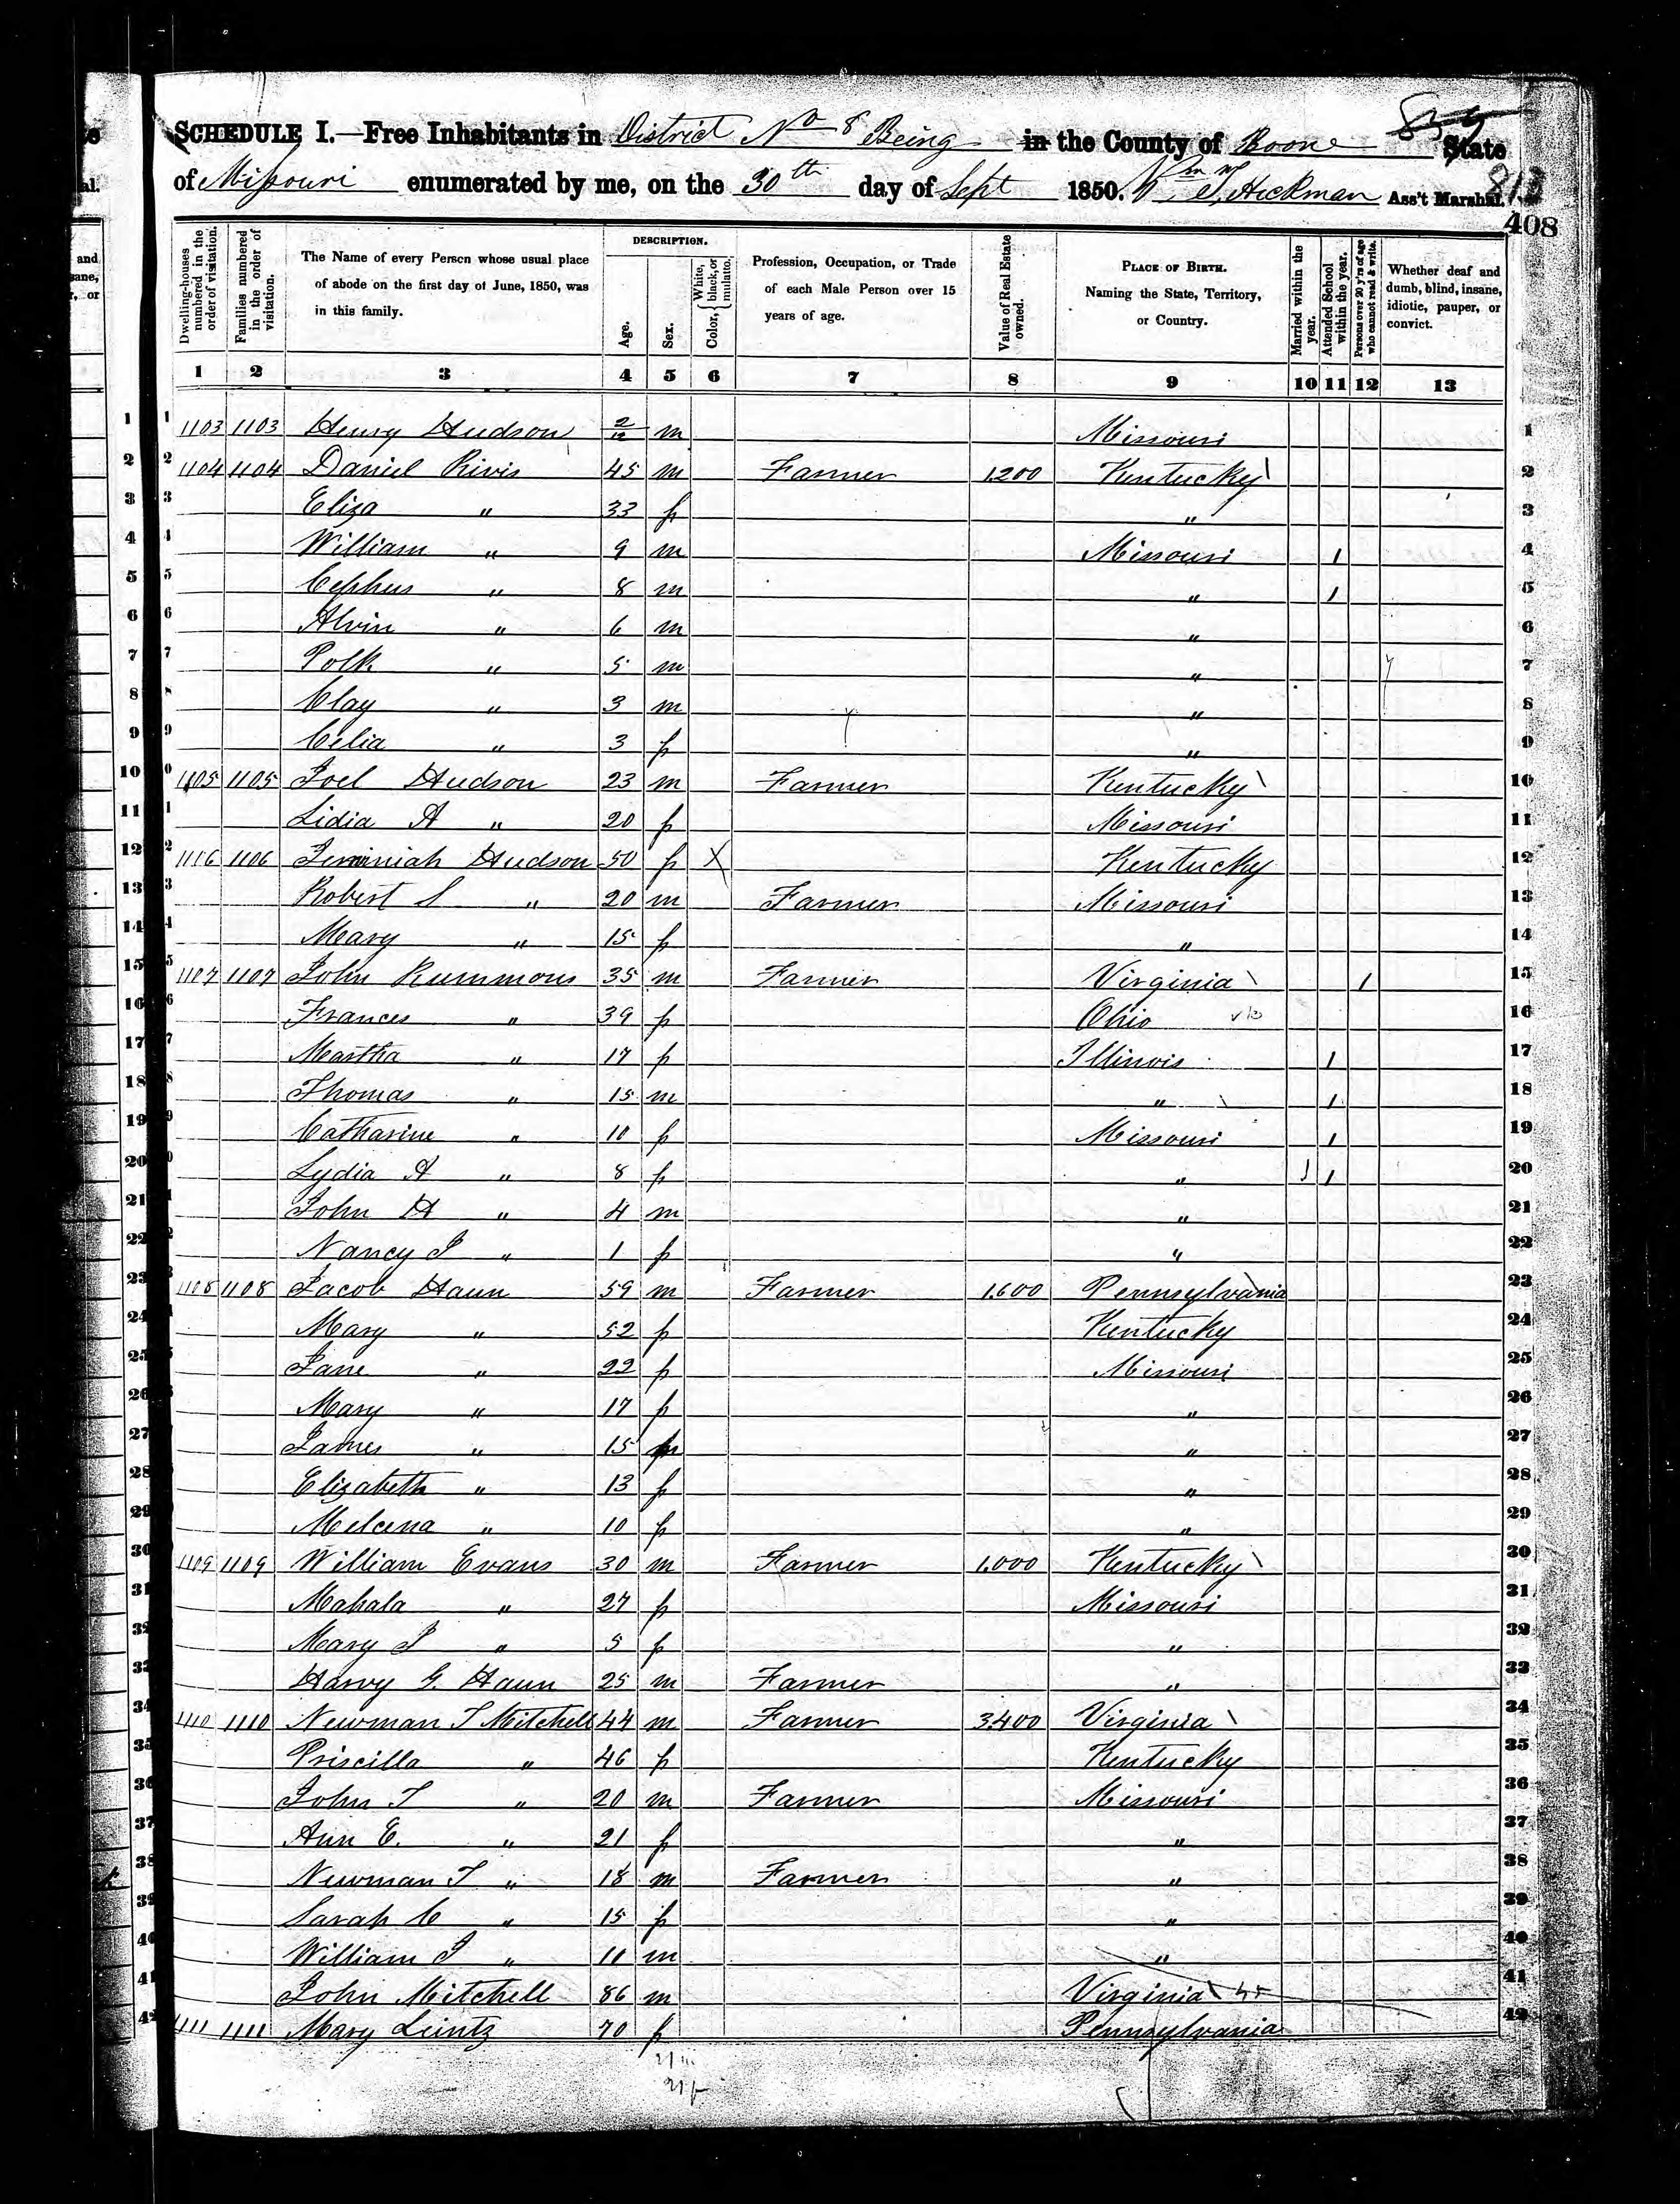 839
SCHEDULE I.—Free Inhabitants in District No 8 Being in the County of Boone State
of Missouri enumerated by me, on the 30th day of Sept 1850. Wm T. Hickman Ass't Marshal.
408
Dwelling-houses numbered in the order of visitation.
Families numbered in the order of visitation.
The Name of every Person whose usual place of abode on the first day of June, 1850, was in this family.
DESCRIPTION.
Age.
Sex.
Color, { White, black, or mulatto.
Profession, Occupation, or Trade of each Male Person over 15 years of age.
Value of Real Estate owned.
PLACE OF BIRTH. Naming the State, Territory, or Country.
Married within the year.
Attended School within the year.
Persons over 20 y'rs of age who cannot read & write.
Whether deaf and dumb, blind, insane, idiotic, pauper, or convict.
1 2 3 4 5 6 7 8 9 10 11 12 13
1 1103 1103 Henry Hudson 2/12 m Missouri 1
2 1104 1104 Daniel Rivis 45 m Farmer 1200 Kentucky 2
3 Eliza " 33 f " 3
4 William " 9 m Missouri 1 4
5 Cephus " 8 m " 1 5
6 Alvin " 6 m " 6
7 Polk " 5 m " 7
8 Clay " 3 m " 8
9 Celia " 3 f " 9
10 1105 1105 Joel Hudson 23 m Farmer Kentucky 10
11 Lidia A " 20 f Missouri 11
12 1106 1106 Jemimiah Hudson 50 f X Kentucky 12
13 Robert S " 20 m Farmer Missouri 13
14 Mary " 15 f " 14
15 1107 1107 John Rummons 35 m Farmer Virginia 1 15
16 Frances " 39 f Ohio 16
17 Martha " 17 f Illinois 1 17
18 Thomas " 15 m " 1 18
19 Catharine " 10 f Missouri 1 19
20 Lydia A " 8 f " 1 20
21 John H " 4 m " 21
22 Nancy J " 1 f " 22
23 1108 1108 Jacob Haun 59 m Farmer 1.600 Pennsylvania 23
24 Mary " 52 f Kentucky 24
25 Jane " 22 f Missouri 25
26 Mary " 17 f " 26
27 James " 15 m " 27
28 Elizabeth " 13 f " 28
29 Melcena " 10 f " 29
30 1109 1109 William Evans 30 m Farmer 1.000 Kentucky 30
31 Mahala " 27 f Missouri 31
32 Mary J " 5 f " 32
33 Harvy G. Haun 25 m Farmer " 33
34 1110 1110 Newman T Mitchell 44 m Farmer 3400 Virginia 34
35 Priscilla " 46 f Kentucky 35
36 John T " 20 m Farmer Missouri 36
37 Ann E. " 21 f " 37
38 Newman T " 18 m Farmer " 38
39 Sarah C " 15 f " 39
40 William J " 11 m " 40
41 John Mitchell 86 m Virginia 41
42 1111 1111 Mary Leintz 70 f Pennsylvania 42
21 m
21 f